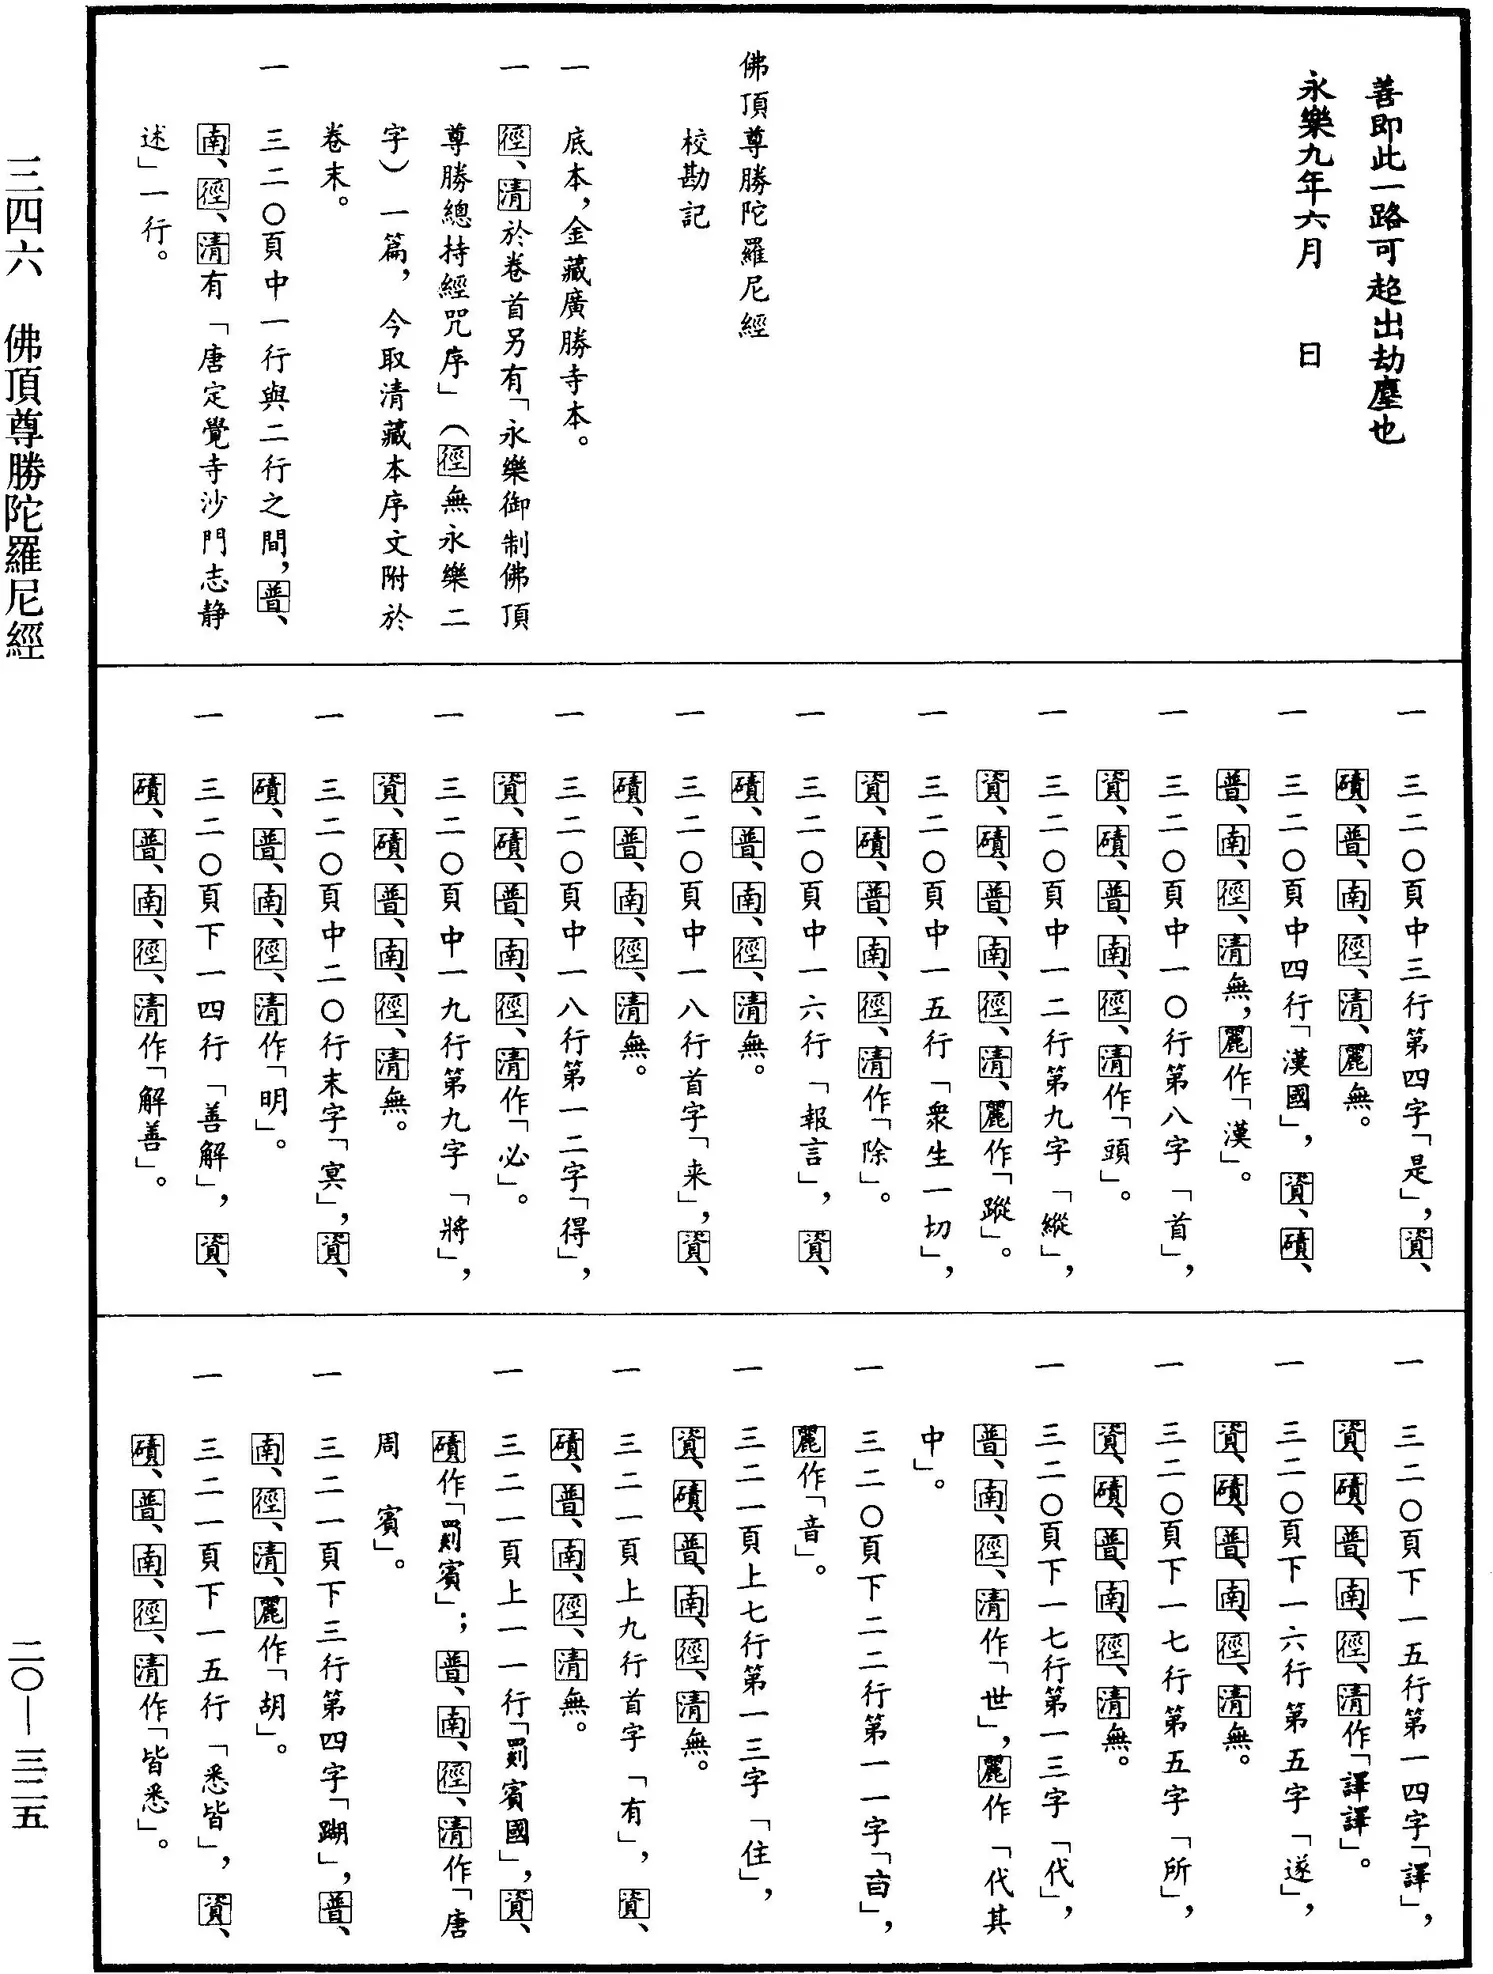 善即此一路可超出劫塵也
永樂九年六月　日
佛頂尊勝陀羅尼經
校勘記
一　底本，金藏廣勝寺本。
一　徑、清於卷首另有「永樂御制佛頂
尊勝總持經咒序」（徑無永樂二
字）一篇，今取清藏本序文附於
卷末。
一　三二〇頁中一行與二行之間，普、
南、徑、清有「唐定覺寺沙門志静
述」一行。
一　三二〇頁中三行第四字「是」，資、
磧、普、南、徑、清、麗無。
一　三二〇頁中四行「漢國」，資、磧、
普、南、徑、清無，麗作「漢」。
一　三二〇頁中一〇行第八字「首」，
資、磧、普、南、徑、清作「頭」。
一　三二〇頁中一二行第九字「縱」，
資、磧、普、南、徑、清、麗作「蹤」。
一　三二〇頁中一五行「衆生一切」，
資、磧、普、南、徑、清作「除」。
一　三二〇頁中一六行「報言」，資、
磧、普、南、徑、清無。
一　三二〇頁中一八行首字「来」，資、
磧、普、南、徑、清無。
一　三二〇頁中一八行第一二字「得」，
資、磧、普、南、徑、清作「必」。
一　三二〇頁中一九行第九字「將」，
資、磧、普、南、徑、清無。
一　三二〇頁中二〇行末字「㝠」，資、
磧、普、南、徑、清作「明」。
一　三二〇頁下一四行「善解」，資、
磧、普、南、徑、清作「解善」。
一　三二〇頁下一五行第一四字「譯」，
資、磧、普、南、徑、清作「譯譯」。
一　三二〇頁下一六行第五字「遂」，
資、磧、普、南、徑、清無。
一　三二〇頁下一七行第五字「所」，
資、磧、普、南、徑、清無。
一　三二〇頁下一七行第一三字「代」，
普、南、徑、清作「世」，麗作「代其
中」。
一　三二〇頁下二二行第一一字「㫖」，
麗作「音」。
一　三二一頁上七行第一三字「住」，
資、磧、普、南、徑、清無。
一　三二一頁上九行首字「有」，資、
磧、普、南、徑、清無。
一　三二一頁上一一行「罽賓國」，資、
磧作「罽賓」；普、南、徑、清作「唐
周　賓」。
一　三二一頁下三行第四字「蝴」，普、
南、徑、清、麗作「胡」。
一　三二一頁下一五行「悉皆」，資、
磧、普、南、徑、清作「皆悉」。
三四六　佛頂尊勝陀羅尼經
二〇—三二五